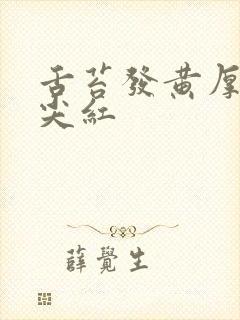 舌苔發黃厚
尖紅
薛覺生